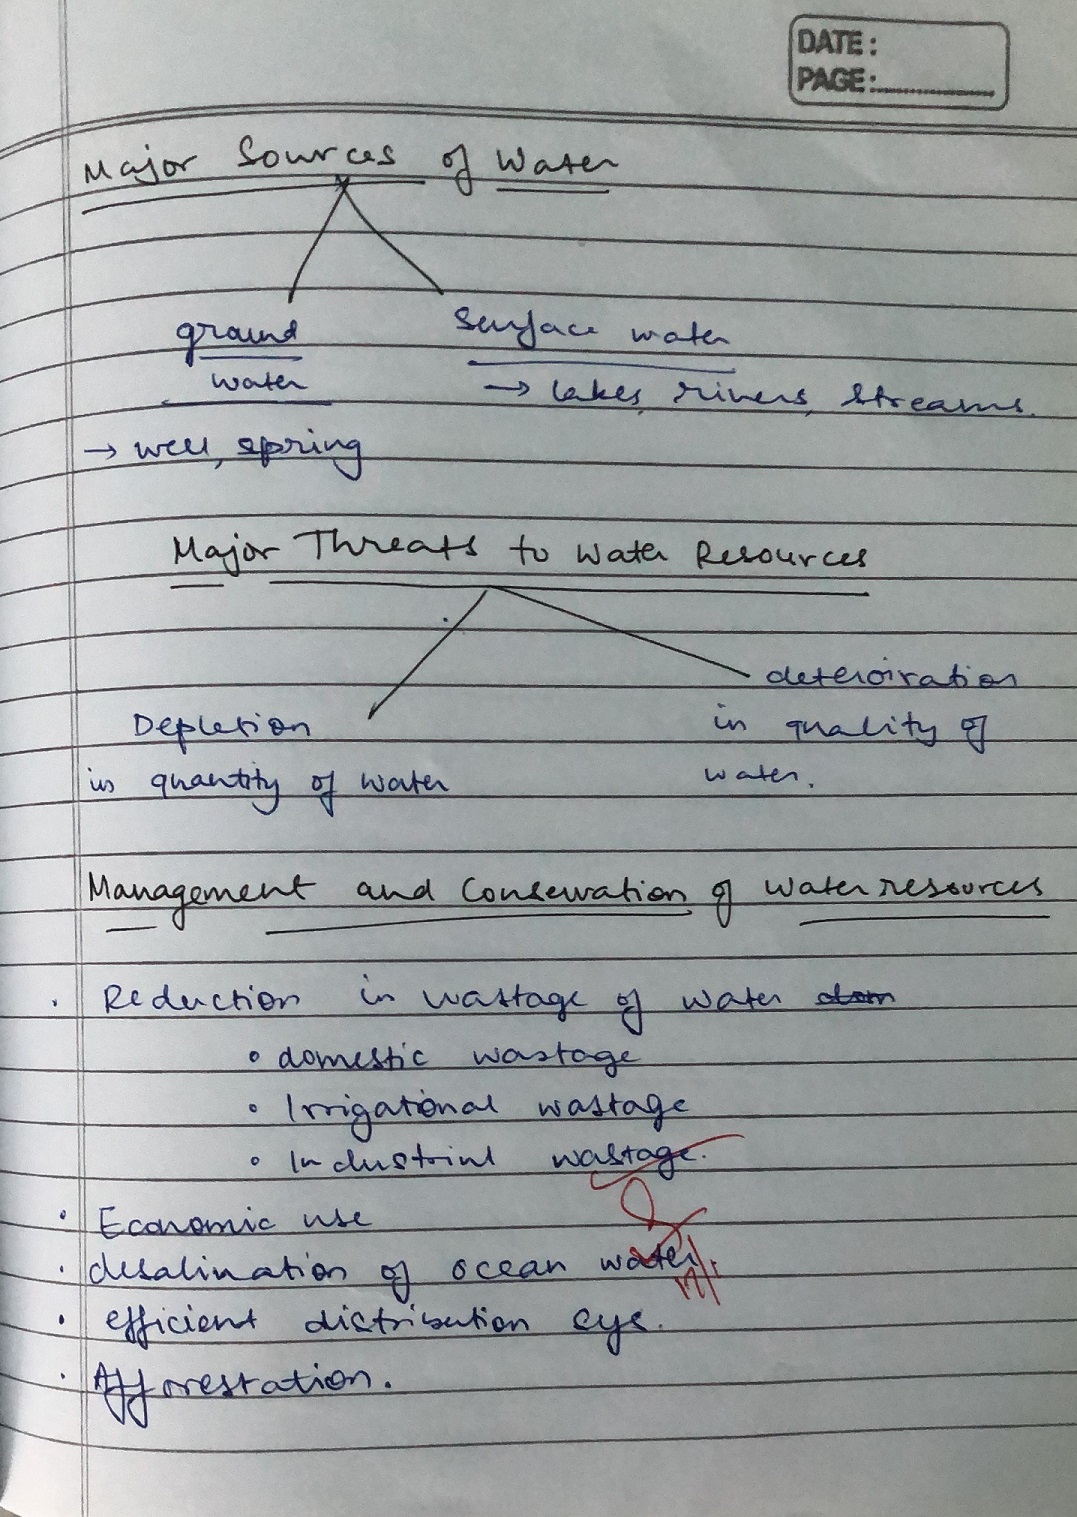 DATE:
PAGE:
Major Sources of Water
ground
water
surface water
→ lakes, rivers, streams.
→ well, spring
Major Threats to Water Resources
Depletion
in quantity of water
deteroiration
in quality of
water.
Management and Conservation of Water resources
· Reduction in wastage of water dom
• domestic wastage
• Irrigational wastage
• Industrial wastage.
• Economic use
• desalination of ocean water
• efficient distribution sys.
• Afforestation.